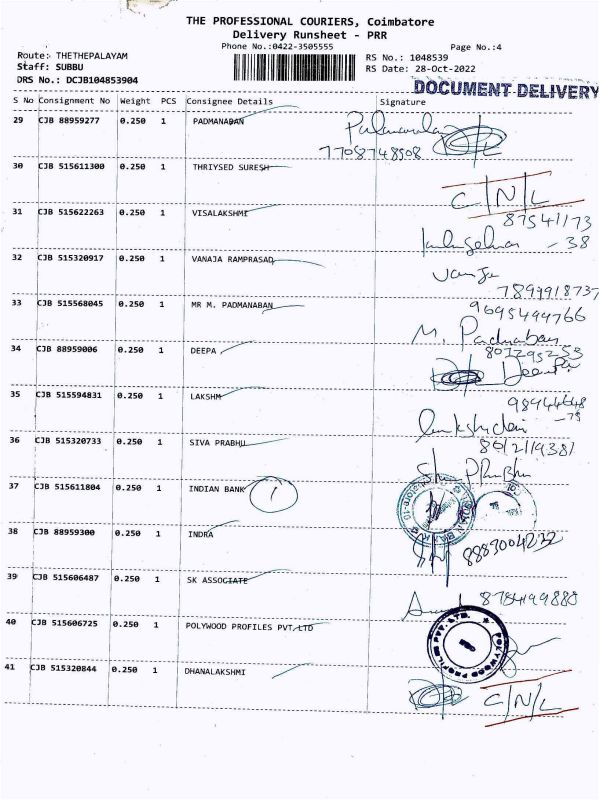 THE PROFESSIONAL COURIERS, Coimbatore
Delivery Runsheet - PRR
Phone No.:0422-3505555 Page No.:4
Route: THETHEPALAYAM RS No.: 1048539
Staff: SUBBU RS Date: 28-Oct-2022
DRS No.: DCJB104853904
DOCUMENT DELIVERY
S No Consignment No Weight PCS Consignee Details Signature
29 CJB 88959277 0.250 1 PADMANABAN
7708748508
30 CJB 515611300 0.250 1 THRIYSED SURESH
C/N/L
31 CJB 515622263 0.250 1 VISALAKSHMI
87541173
- 38
32 CJB 515320917 0.250 1 VANAJA RAMPRASAD
7899918737
33 CJB 515568045 0.250 1 MR M. PADMANABAN
9695499766
M. Padmaban
34 CJB 88959006 0.250 1 DEEPA
801295253
35 CJB 515594831 0.250 1 LAKSHM
98944648
- 79
36 CJB 515320733 0.250 1 SIVA PRABHU
8012119381
37 CJB 515611804 0.250 1 INDIAN BANK 1
38 CJB 88959300 0.250 1 INDRA
39 CJB 515606487 0.250 1 SK ASSOCIATE
8784199880
40 CJB 515606725 0.250 1 POLYWOOD PROFILES PVT.LTD
POLYWOOD PROFILES PVT. LTD.
41 CJB 515320844 0.250 1 DHANALAKSHMI
C/N/L